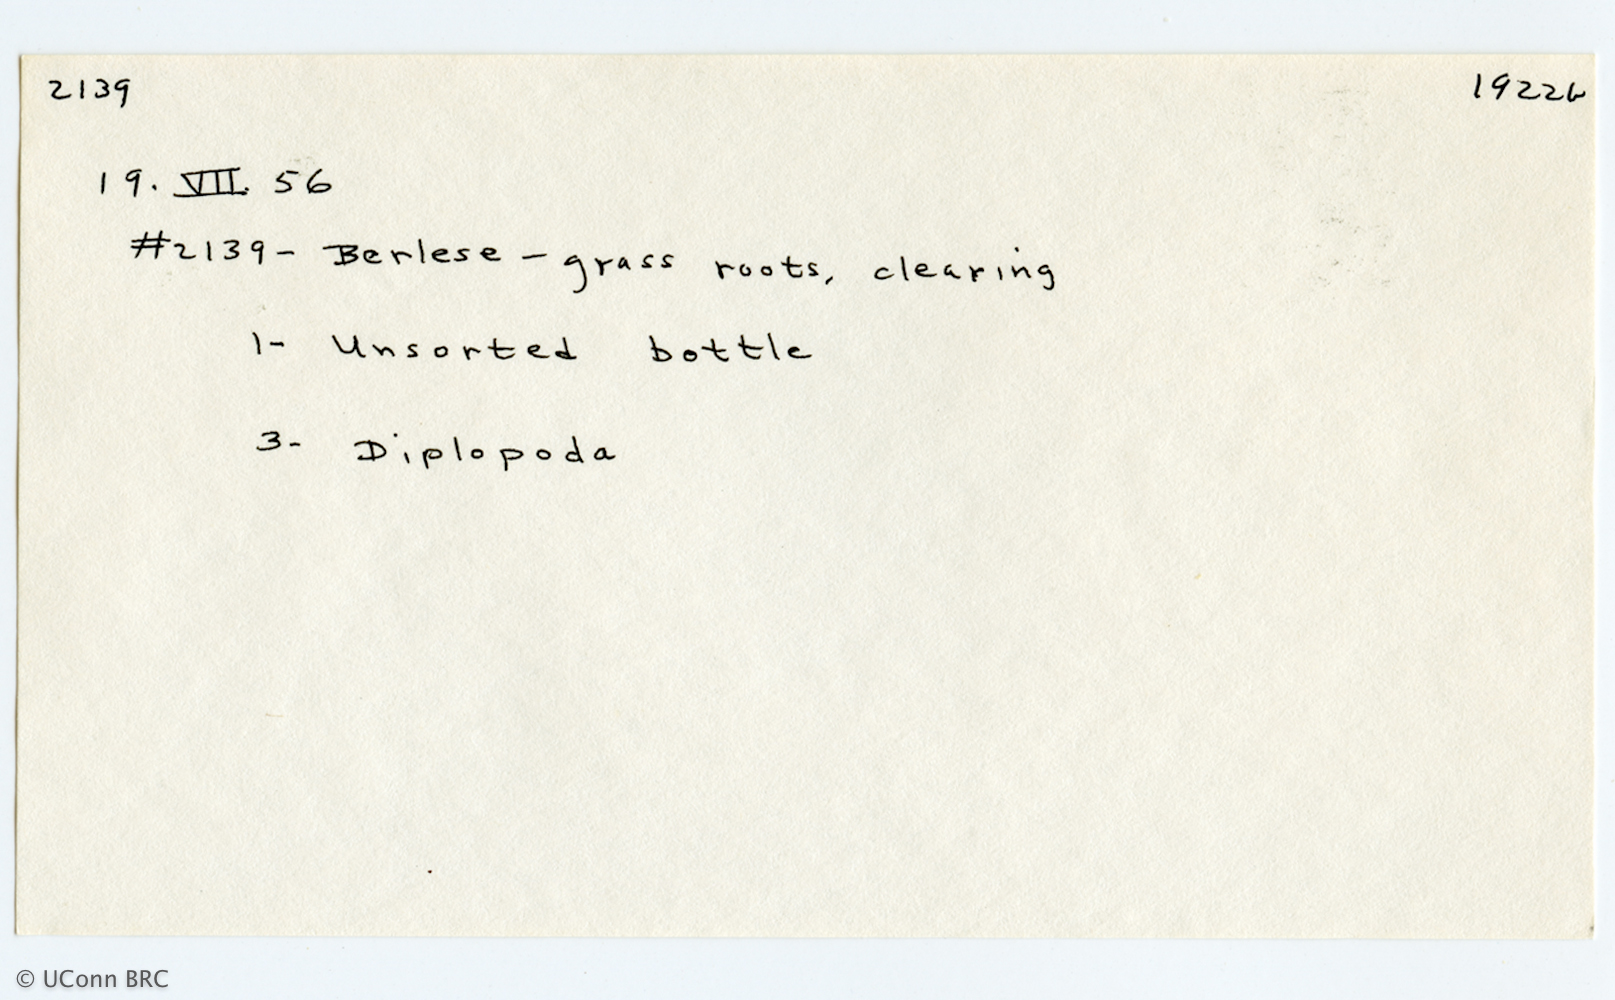 2139 19226
19. VII. 56
#2139 - Berlese - grass roots, clearing
1- Unsorted bottle
3- Diplopoda
© UConn BRC